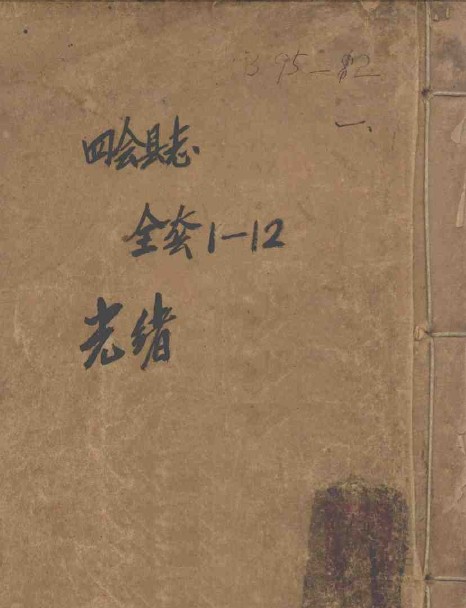 95-12
一、
四会县志
全套1-12
光绪